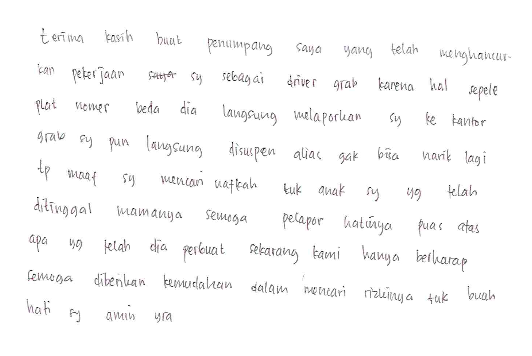 terima kasih buat penumpang saya yang telah menghancur-
kan pekerjaan sy sebagai driver grab karena hal sepele
plat nomer beda dia langsung melaporkan sy ke kantor
grab sy pun langsung disuspen alias gak bisa narik lagi
tp maaf sy mencari nafkah tuk anak sy yg telah
ditinggal mamanya semoga pelapor hatinya puas atas
apa yg telah dia perbuat sekarang kami hanya berharap
semoga diberikan kemudahan dalam mencari rizkinya tuk buah
hati sy amin yra